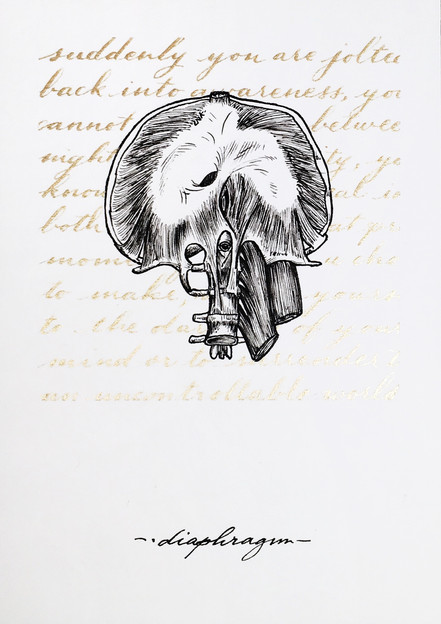 suddenly you are jolte
back into awareness, you
cannot betwee
night ty, yo
know al
both at pr
mom u cho
to make, yours
to the da of your
mind or to surrender
an uncontrollable world
- . diaphragm -